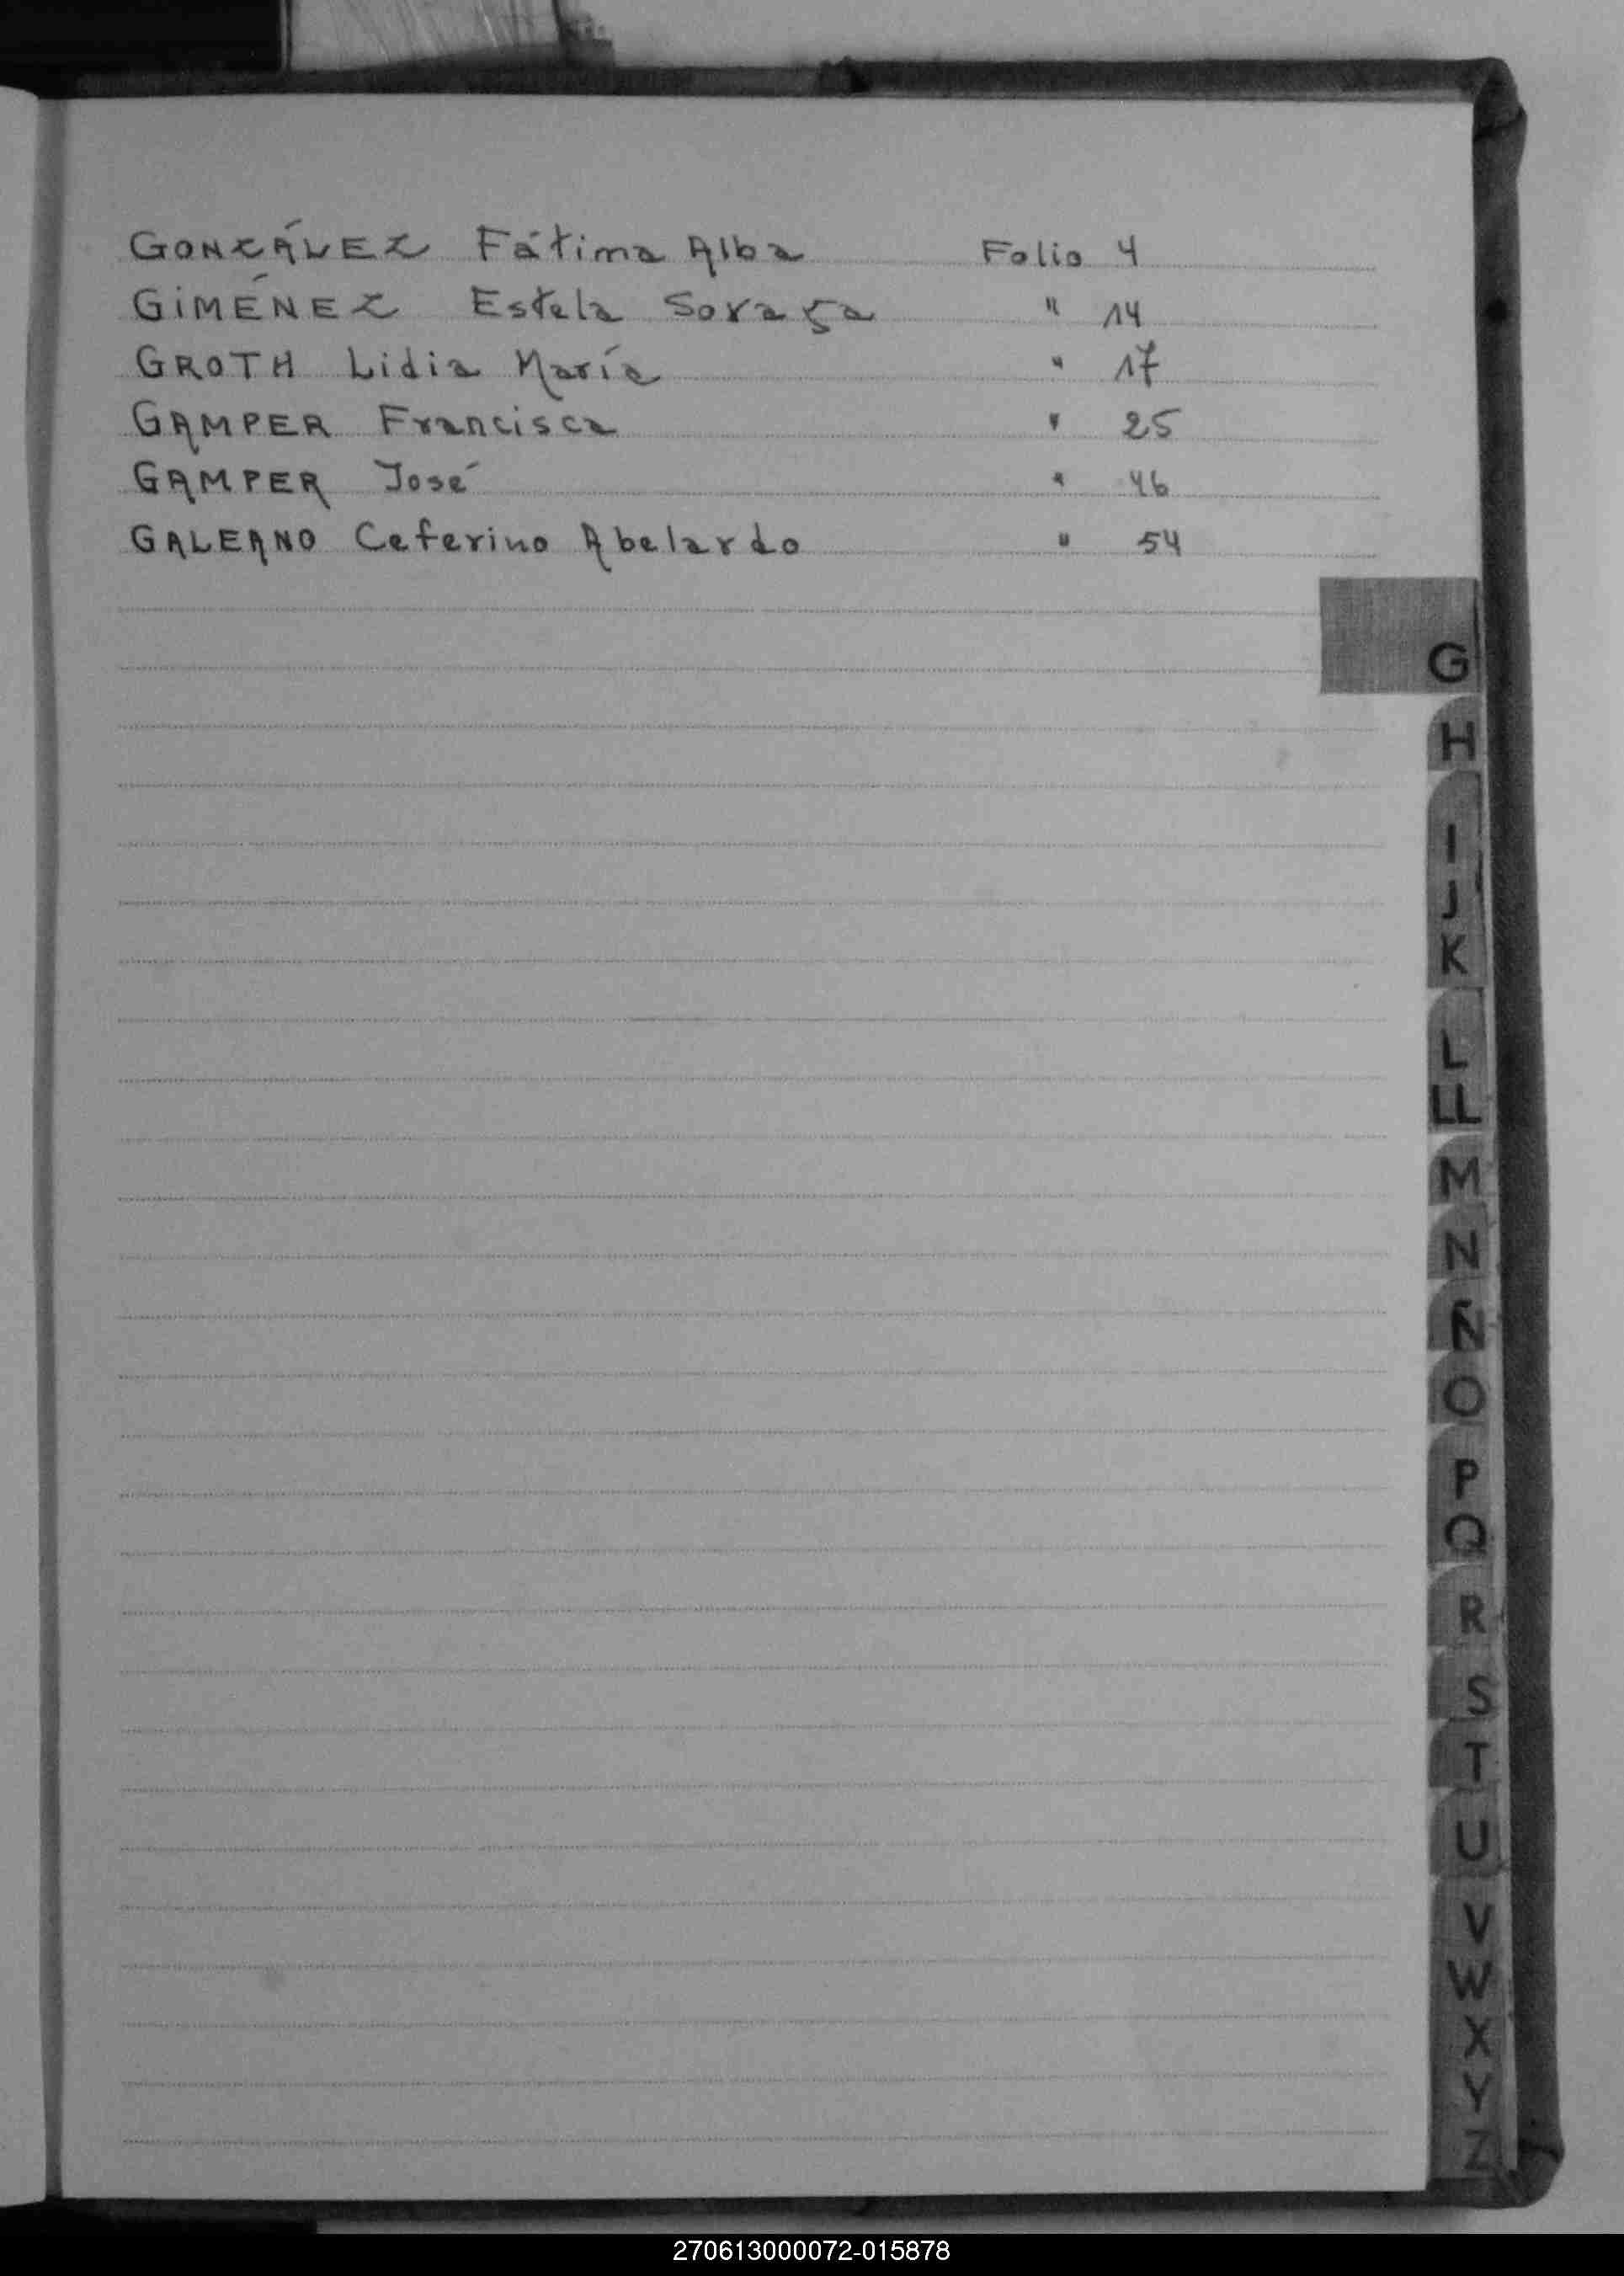 GONZÁLEZ Fátima Alba Folio 4
GiMÉNEZ Estela Soraya " 14
GROTH Lidia María " 17
GAMPER Francisca " 25
GAMPER José " 46
GALEANO Ceferino Abelardo " 54
G
H
I
J
K
L
LL
M
N
Ñ
O
P
Q
R
S
T
U
V
W
X
Y
Z
270613000072-015878